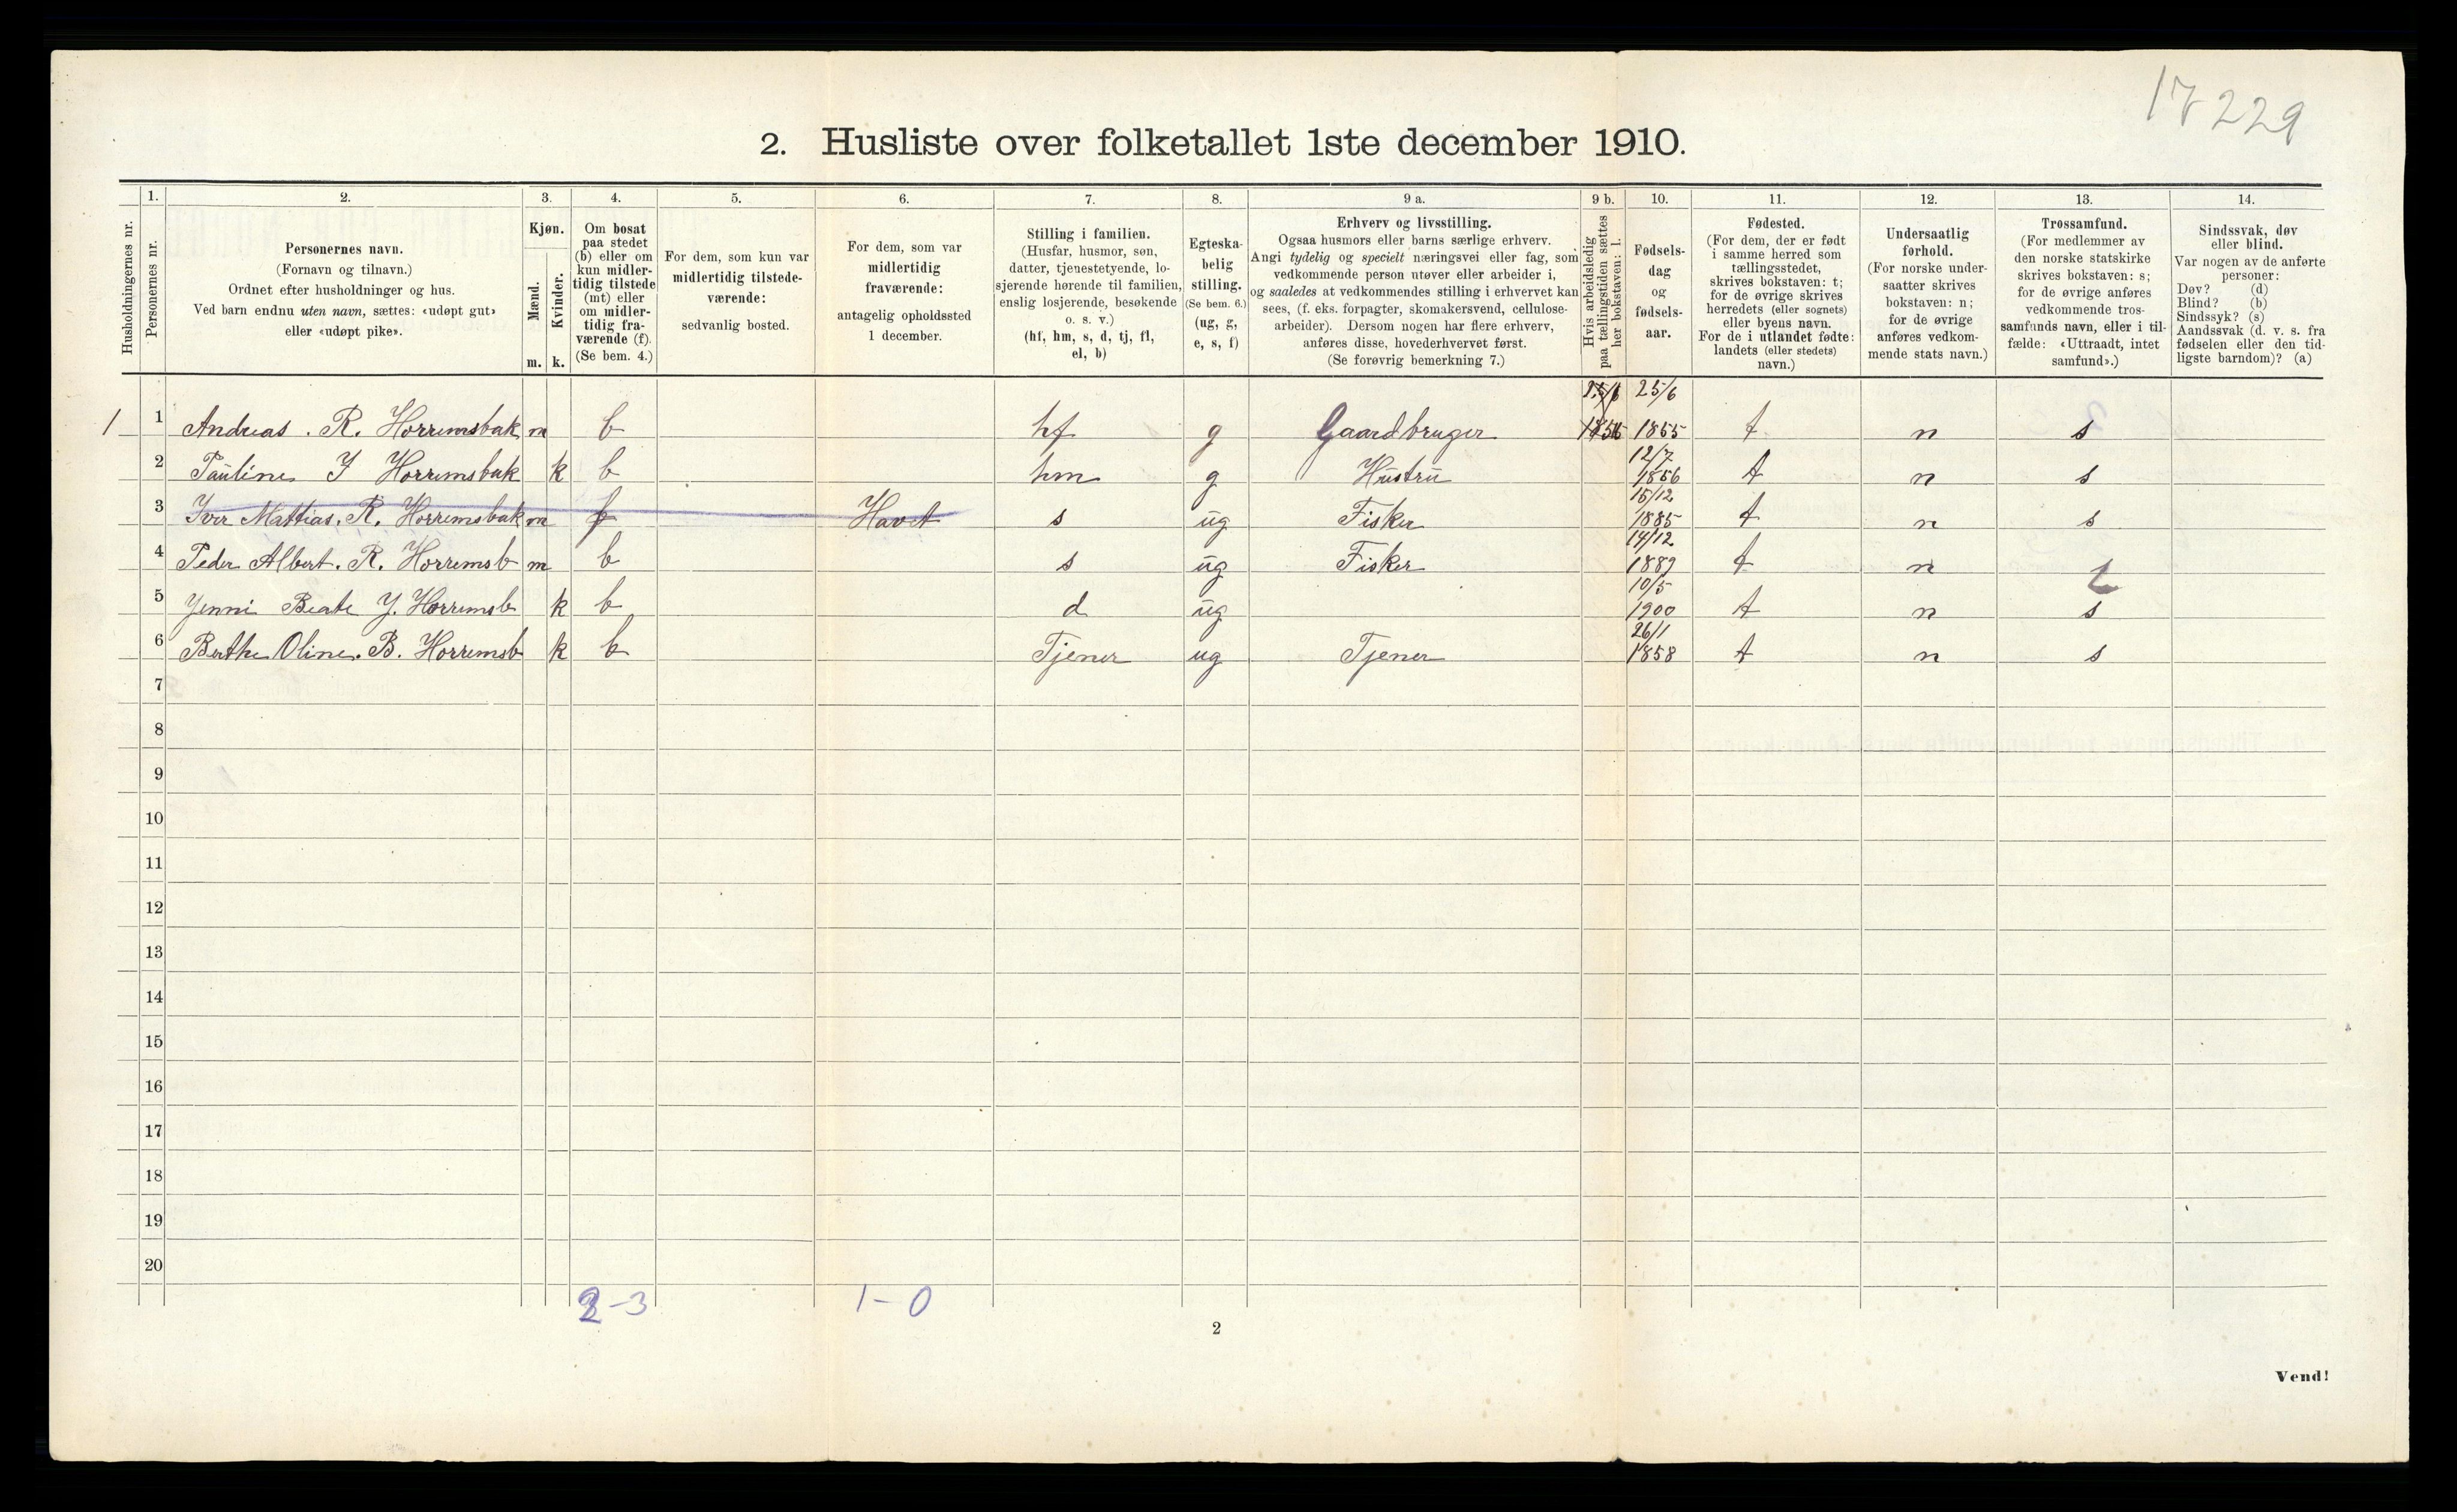 17 229
2. Husliste over folketallet 1ste december 1910.
Husholdningernes nr.
1. Personernes nr.
2. Personernes navn.
(Fornavn og tilnavn.)
Ordnet efter husholdninger og hus.
Ved barn endnu uten navn, sættes: «udøpt gut»
eller «udøpt pike».
3. Kjøn.
Mænd. m.
Kvinder. k.
4. Om bosat
paa stedet
(b) eller om
kun midler-
tidig tilstede
(mt) eller
om midler-
tidig fra-
værende (f).
(Se bem. 4.)
5. For dem, som kun var
midlertidig tilstede-
værende:
sedvanlig bosted.
6. For dem, som var
midlertidig
fraværende:
antagelig opholdssted
1 december.
7. Stilling i familien.
(Husfar, husmor, søn,
datter, tjenestetyende, lo-
sjerende hørende til familien,
enslig losjerende, besøkende
o. s. v.)
(hf, hm, s, d, tj, fl,
el, b)
8. Egteska-
belig
stilling.
(Se bem. 6.)
(ug, g,
e, s, f)
9 a. Erhverv og livsstilling.
Ogsaa husmors eller barns særlige erhverv.
Angi tydelig og specielt næringsvei eller fag, som
vedkommende person utøver eller arbeider i,
og saaledes at vedkommendes stilling i erhvervet kan
sees, (f. eks. forpagter, skomakersvend, cellulose-
arbeider). Dersom nogen har flere erhverv,
anføres disse, hovederhvervet først.
(Se forøvrig bemerkning 7.)
9 b. Hvis arbeidsledig
paa tællingstiden sættes
her bokstaven: l.
10. Fødsels-
dag
og
fødsels-
aar.
11. Fødested.
(For dem, der er født
i samme herred som
tællingsstedet,
skrives bokstaven: t;
for de øvrige skrives
herredets (eller sognets)
eller byens navn.
For de i utlandet fødte:
landets (eller stedets)
navn.)
12. Undersaatlig
forhold.
(For norske under-
saatter skrives
bokstaven: n;
for de øvrige
anføres vedkom-
mende stats navn.)
13. Trossamfund.
(For medlemmer av
den norske statskirke
skrives bokstaven: s;
for de øvrige anføres
vedkommende tros-
samfunds navn, eller i til-
fælde: «Uttraadt, intet
samfund».)
14. Sindssvak, døv
eller blind.
Var nogen av de anførte
personer:
Døv? (d)
Blind? (b)
Sindssyk? (s)
Aandssvak (d. v. s. fra
fødselen eller den tid-
ligste barndom)? (a)
1 1 Andreas . R. Horremsbak m b hf g Gaardbruger 25/6 1855 t n s
2 Pauline J Horremsbak k b hm g Hustru 12/7 1856 t n s
3 Iver Mattias. R. Horremsbak m f Havet s ug Fisker 15/12 1885 t n s
4 Peder Albert. R. Horremsb m b s ug Fisker 14/12 1889 t n
5 Jenni Beate J. Horremsb k b d ug 10/5 1900 t n s
6 Berthe Oline. B. Horremsb k b Tjener ug Tjener 26/1 1858 t n s
7
8
9
10
11
12
13
14
15
16
17
18
19
20
2-3 1-0
2
Vend!